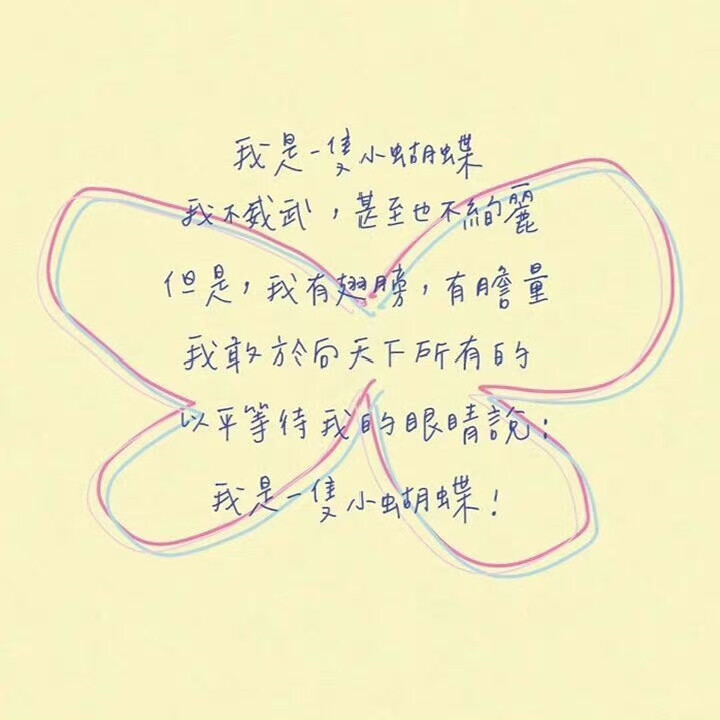 我是一隻小蝴蝶
我不威武，甚至也不絢麗
但是，我有翅膀，有膽量
我敢於向天下所有的
以平等待我的眼睛說：
我是一隻小蝴蝶！